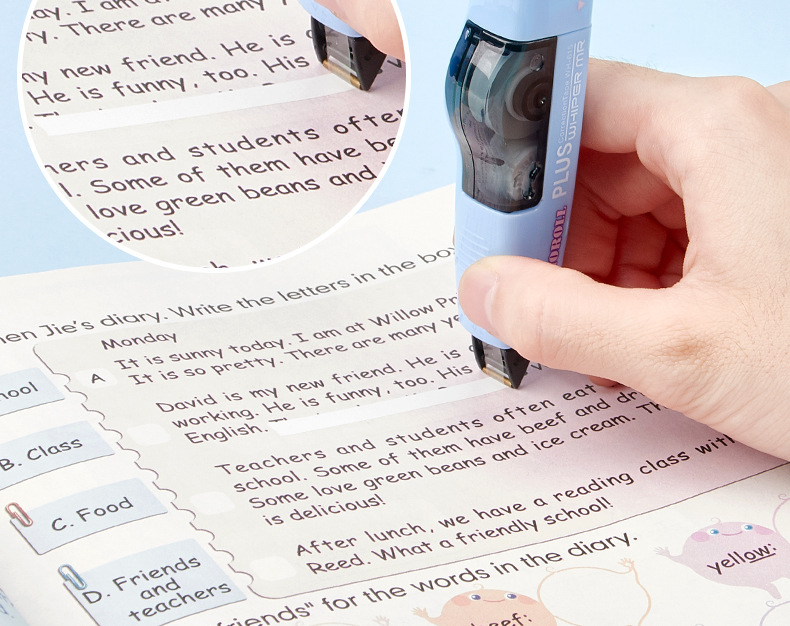 ay. I am a
y. There are many
my new friend. He is
He is funny, too. His
hers and students often
l. Some of them have be
love green beans and
cious!
PLUS WHIPER MR
en Jie's diary. Write the letters in the bo
Monday
A
It is sunny today. I am at Willow Pr
It is so pretty. There are many ye
David is my new friend. He is
working. He is funny, too. His
English.
Teachers and students often eat
school. Some of them have beef and dr
Some love green beans and ice cream. Th
is delicious!
After lunch, we have a reading class with
Reed. What a friendly school!
ool
B. Class
C. Food
D. Friends
and
teachers
friends" for the words in the diary.
beef:
yellow: